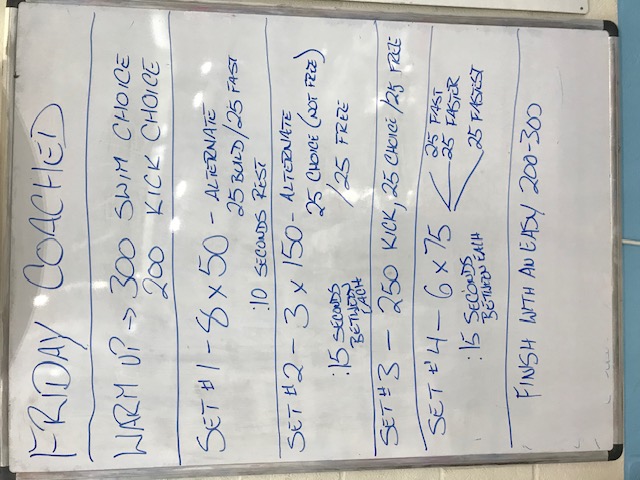 FRIDAY COACHED
WARM UP → 300 SWIM CHOICE
200 KICK CHOICE
SET #1 - 8 x 50 - ALTERNATE
25 BUILD/25 FAST
:10 SECONDS REST
SET #2 - 3 x 150 - ALTERNATE
25 CHOICE (NOT FREE)
/25 FREE
:15 SECONDS
BETWEEN
EACH
SET #3 - 250 KICK, 25 CHOICE/25 FREE
SET #4 - 6 x 75
25 FAST
25 FASTER
25 FASTEST
:15 SECONDS
BETWEEN EACH
FINISH WITH AN EASY 200-300